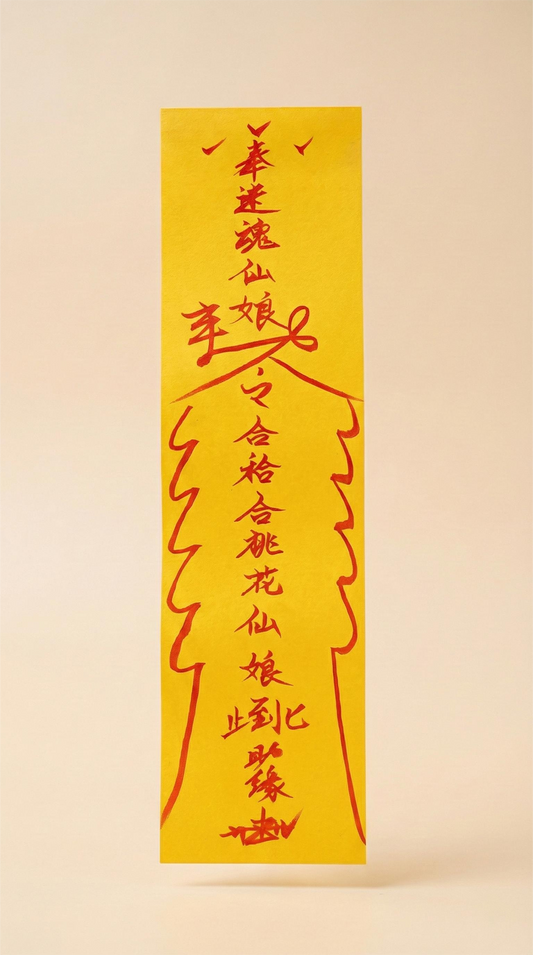 奉迷魂仙娘
令合袷合桃花仙娘
到此
助缘